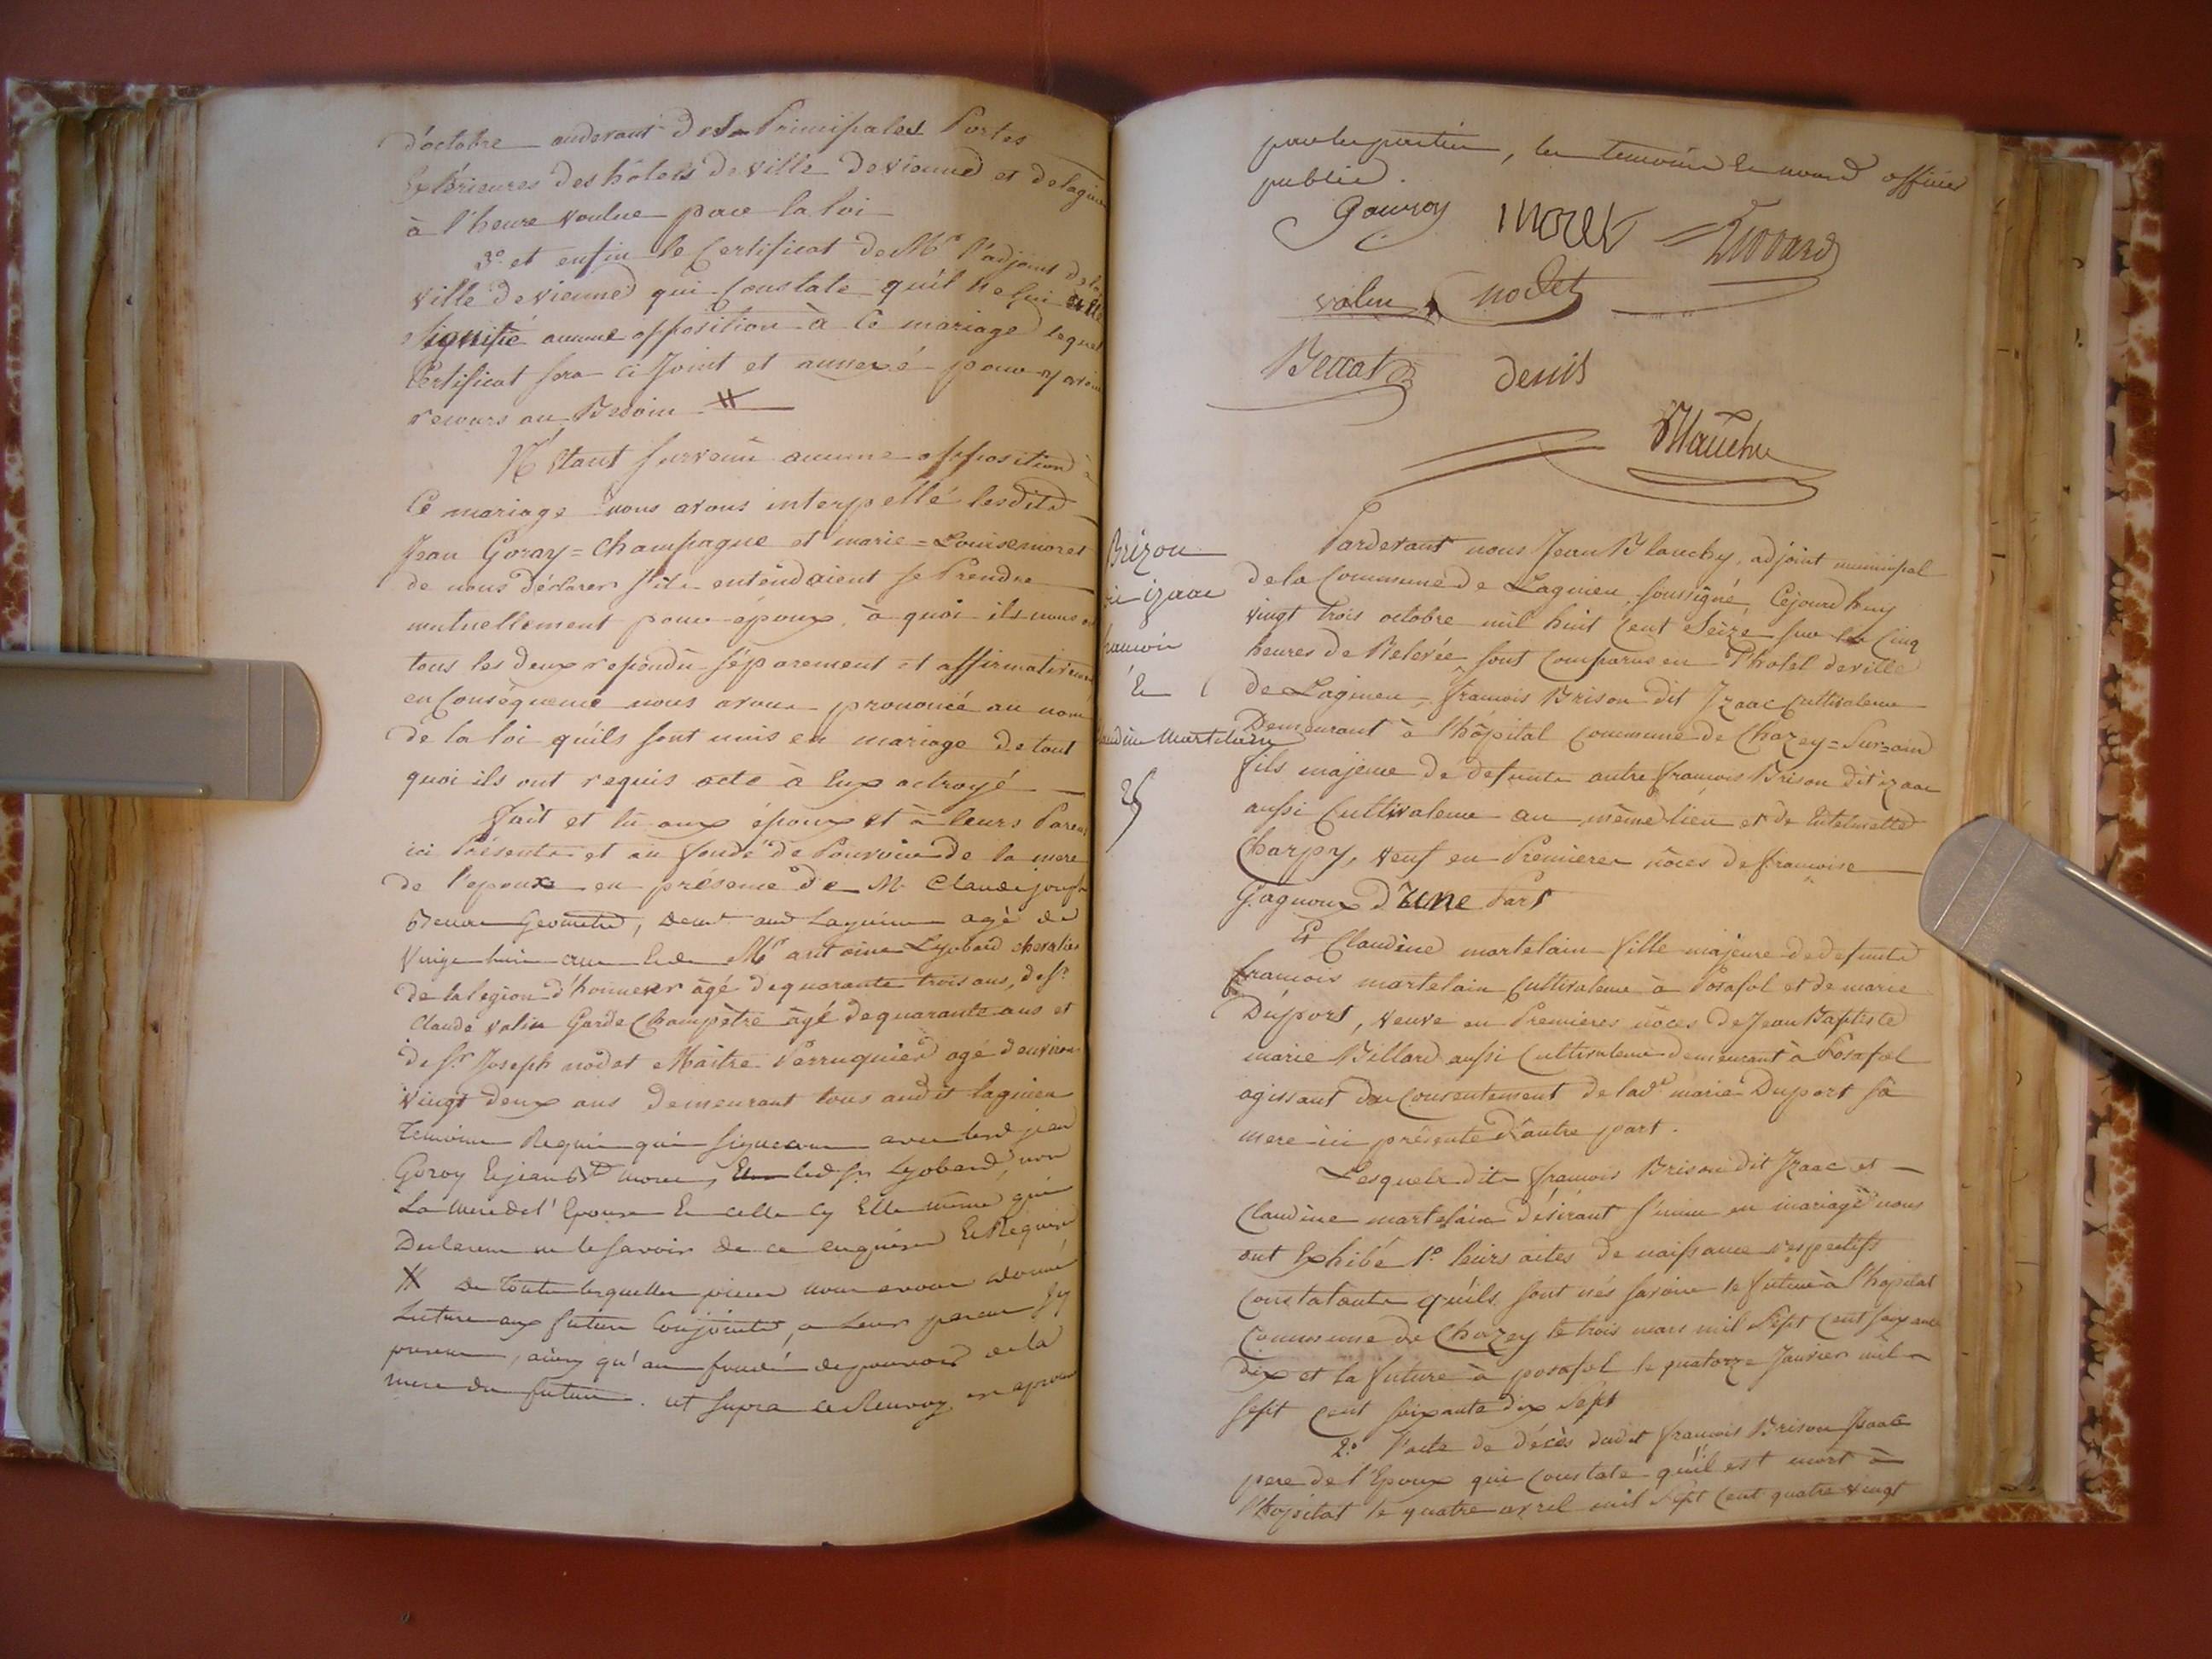 d'octobre audevant des Principales Portes
Extérieures des hôtels de ville de vienne et de lagnieu
à l'heure voulue par la loi
3º et enfin le Certificat de Mr l'adjoint de la
ville de vienne qui Constate qu'il ne lui
Signifié aucune opposition à Ce mariage lequel
Certificat sera ci Joint et annexé pour y avoir
recours au Besoin #
N'Etant Survenu aucune opposition à
Ce mariage nous avons interpellé lesdits
Jean Goray = Champagne et marie = Louise moret
de nous déclarer s'ils entendaient se Prendre
mutuellement pour époux, à quoi ils nous
tous les deux repondu séparement et affirmativement
en Conséquence nous avons prononcé au nom
de la loi qu'ils sont unis en mariage de tout
quoi ils ont requis acte à Eux octroyé
Fait et lu aux époux et à leurs Parens
ici Présents et au fondé de Pouvoir de la mere
de l'epoux en présence de Mr Claude joseph
Geometre, demt aud Lagnieu agé de
Vingt huit ans de Mr antoine Lyobard chevalier
de la legion d'honneur âgé de quarante trois ans, de Sr
Claude valin Garde Champêtre âgé de quarante ans et
de Sr Joseph nodet Maître Perruquier agé d'environ
vingt deux ans demeurant tous audit lagnieu
Temoins Requis qui signeront avec led jean
Goroy Et jean Bte moret, led Sr Lyobard, non
La mere de l'Epouse Et celle cy Elle même qui
ne le savoir de ce enquise Et Requise
# de toutes lesquelles pieces nous avons donné
Lecture aux futurs Conjoints, a Leurs parens Icy
presens, ainsy qu'au fondé de pouvoir de la
mere du futur. ut supra ce Renvoy
par les parties, les temoins Et nous officier
public.
Gouroy moret
valin nodet
denis
Blauchy
Brizon
dit izaac
francois
Et
Claudine Martelain
25
Pardevant nous Jean Blauchy, adjoint municipal
de la Commune de Lagnieu, soussigné, Cejourdhuy
vingt trois octobre mil huit Cent Seize sur les Cinq
heures de Relevée sont Comparus en l'hotel de ville
de Lagnieu, francois Brison dit Izaac Cultivateur
Demeurant à l'hôpital Commune de Chazey = Sur = ain
fils majeur de defunts autre francois Brison dit izaac
aussi Cultivateur au même lieu et de
Charpy, Veuf en Premieres nôces de francoise
Gagnoux d'Une Part
Et Claudine martelain fille majeure de defunt
francois martelain Cultivateur à Posafol et de marie
Duport, veuve en Premieres nôces de Jean Baptiste
marie Billard aussi Cultivateur demeurant à Posafol
agissant du Consentement de lade marie Duport sa
mere ici présente d'autre part.
Lesquels dits francois Brison dit Izaac et
Claudine martelain désirant s'unir en mariage nous
ont Exhibé 1º leurs actes de naissance respectifs
Constatants qu'ils sont nés savoir le futur à l'hopital
Commune de Chazey le trois mars mil Sept Cent Soixante
dix et la future à posafol le quatorze Janvier mil
sept Cent soixante dix sept
2º l'acte de décès dudit francois Brison Isaac
pere de l'Epoux qui Constate qu'il est mort à
l'hopital le quatre avril mil Sept Cent quatre vingt